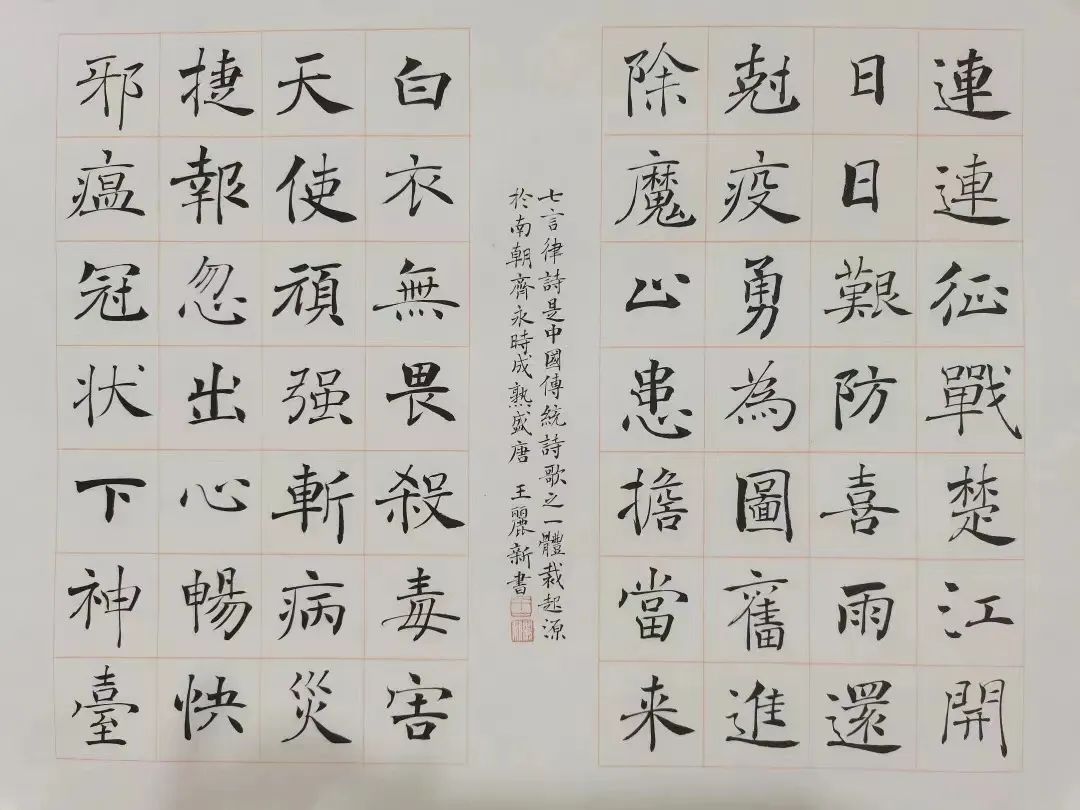 連連征戰楚江開
日日艱防喜雨還
尅疫勇為圖舊進
除魔止患擔當来
七言律詩是中國傳統詩歌之一體裁起源
於南朝齊永時成熟盛唐 王麗新書
白衣無畏殺毒害
天使頑强斬病災
捷報忽出心暢快
邪瘟冠状下神臺